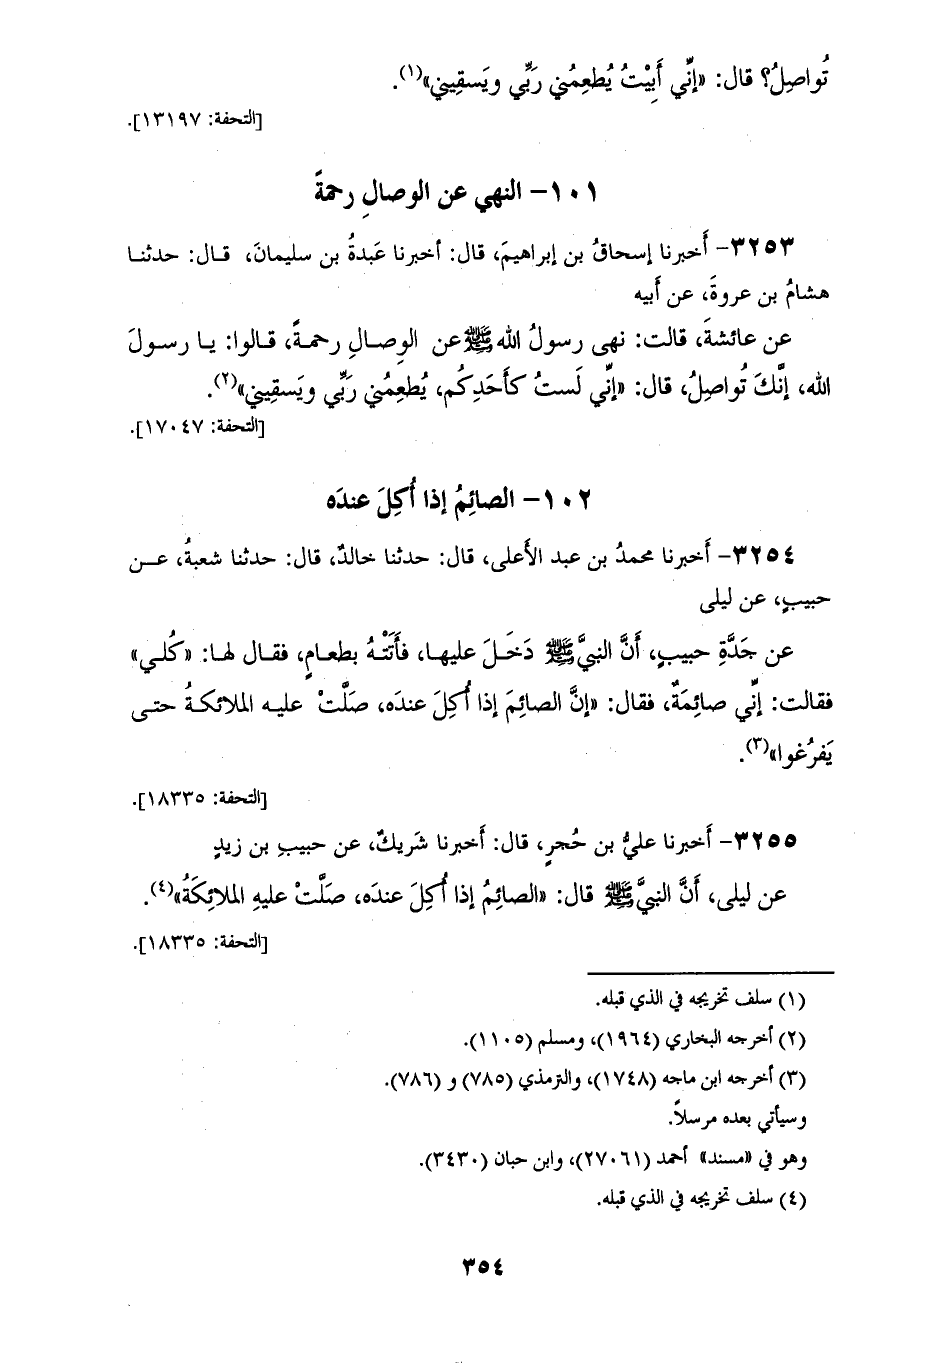 تُواصِلُ؟ قال: «إنِّي أَبِيْتُ يُطعِمُني رَبِّي ويَسقِيني»(١).
[التحفة: ١٣١٩٧].
١٠١- النهي عن الوصالِ رحمةً
٣٢٥٣- أَخبرنا إسحاقُ بن إبراهيمَ، قال: أخبرنا عَبدةُ بن سليمانَ، قال: حدثنا
هشامُ بن عروةَ، عن أبيه
عن عائشةَ، قالت: نهى رسولُ اللهﷺ عن الوِصالِ رحمةً، قالوا: يا رسولَ
الله، إنَّكَ تُواصِلُ، قال: «إنِّي لَستُ كأَحَدِكُم، يُطعِمُني رَبِّي ويَسقِيني»(٢).
[التحفة: ١٧٠٤٧].
١٠٢- الصائِمُ إذا أُكِلَ عندَه
٣٢٥٤- أَخبرنا محمدُ بن عبد الأَعلى، قال: حدثنا خالدٌ، قال: حدثنا شعبةُ، عن
حبيبٍ، عن ليلى
عن جَدَّةِ حبيبٍ، أَنَّ النبيَّﷺ دَخَلَ عليها، فأَتَتْهُ بطعامٍ، فقال لها: «كُلي»
فقالت: إنِّي صائِمَةٌ، فقال: «إنَّ الصائِمَ إذا أُكِلَ عندَه، صَلَّتْ عليه الملائكةُ حتى
يَفرُغوا»(٣).
[التحفة: ١٨٣٣٥].
٣٢٥٥- أَخبرنا عليُّ بن حُجرٍ، قال: أَخبرنا شَريكٌ، عن حبيبِ بن زيدٍ
عن ليلى، أَنَّ النبيَّﷺ قال: «الصائِمُ إذا أُكِلَ عندَه، صَلَّتْ عليهِ الملائِكَةُ»(٤).
[التحفة: ١٨٣٣٥].
(١) سلف تخريجه في الذي قبله.
(٢) أخرجه البخاري (١٩٦٤)، ومسلم (١١٠٥).
(٣) أخرجه ابن ماجه (١٧٤٨)، والترمذي (٧٨٥) و (٧٨٦).
وسيأتي بعده مرسلاً.
وهو في «مسند» أحمد (٢٧٠٦١)، وابن حبان (٣٤٣٠).
(٤) سلف تخريجه في الذي قبله.
٣٥٤